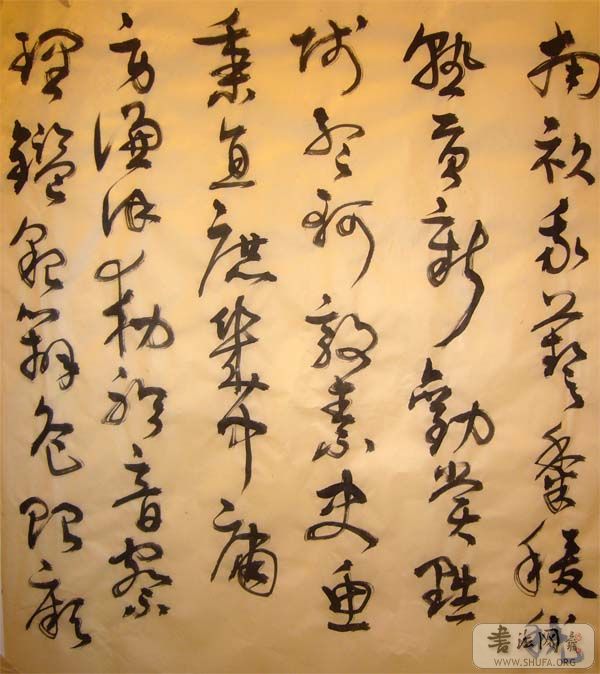 南畝我藝黍稷稅
熟貢新勸賞黜
陟孟軻敦素史魚
秉直庶幾中庸
勞謙謹敕聆音察
理鑑貌辨色貽厥
書法网
WWW.SHUFA.ORG